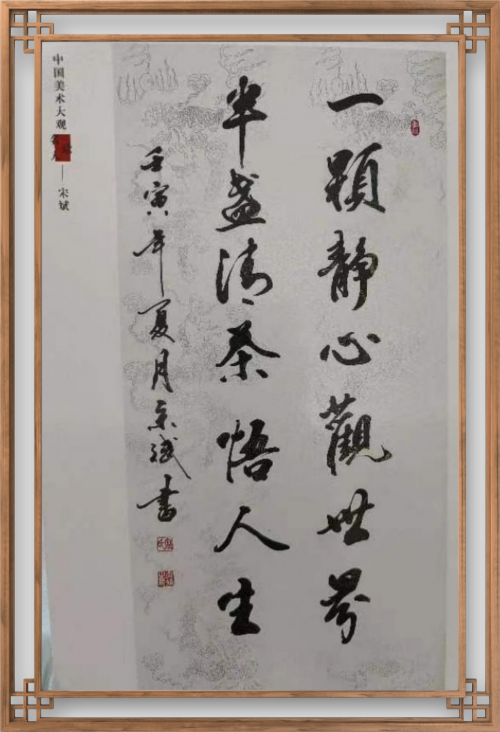 一顆静心觀世界
半盏清茶悟人生
壬寅年夏月宋斌書
中国美术大观
——宋斌